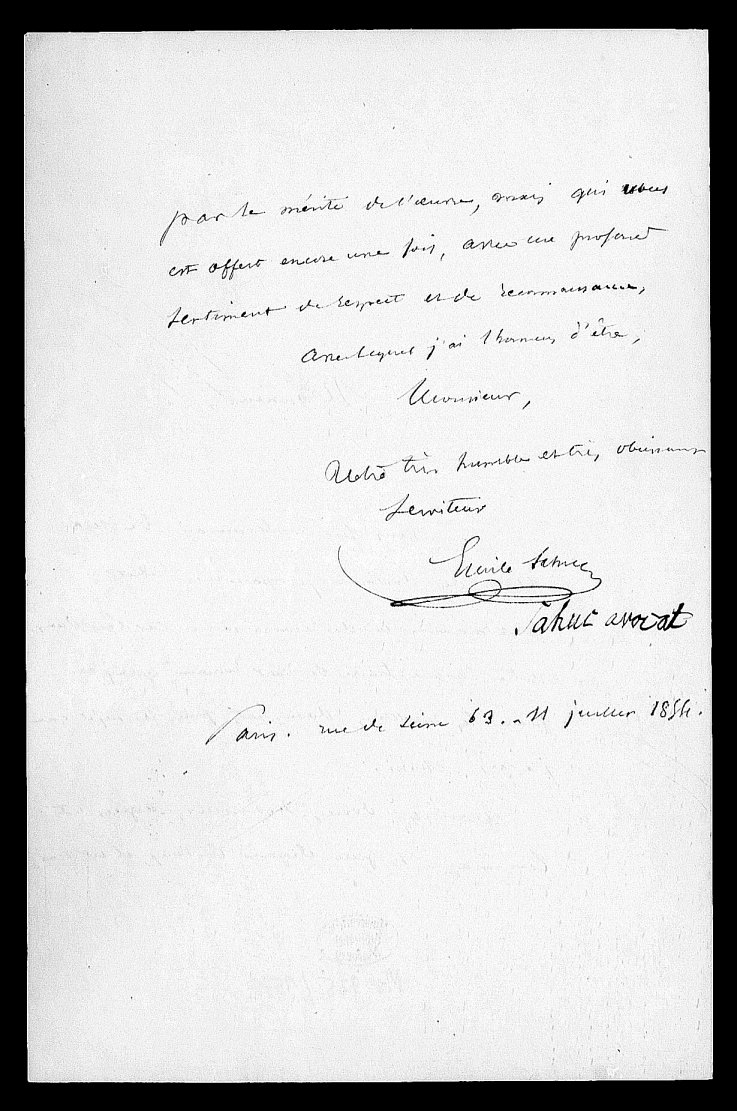 par le mérite de l'œuvre, mais qui vous
est offert encore une fois, avec un profond
sentiment de respect et de reconnaissance,
avec lequel j'ai l'honneur d'être,
Monsieur,
Votre très humble et très obéissant
serviteur
Emile Sahuc
Sahuc avocat
Paris. rue de Seine, 63. - 11 juillet 1854.